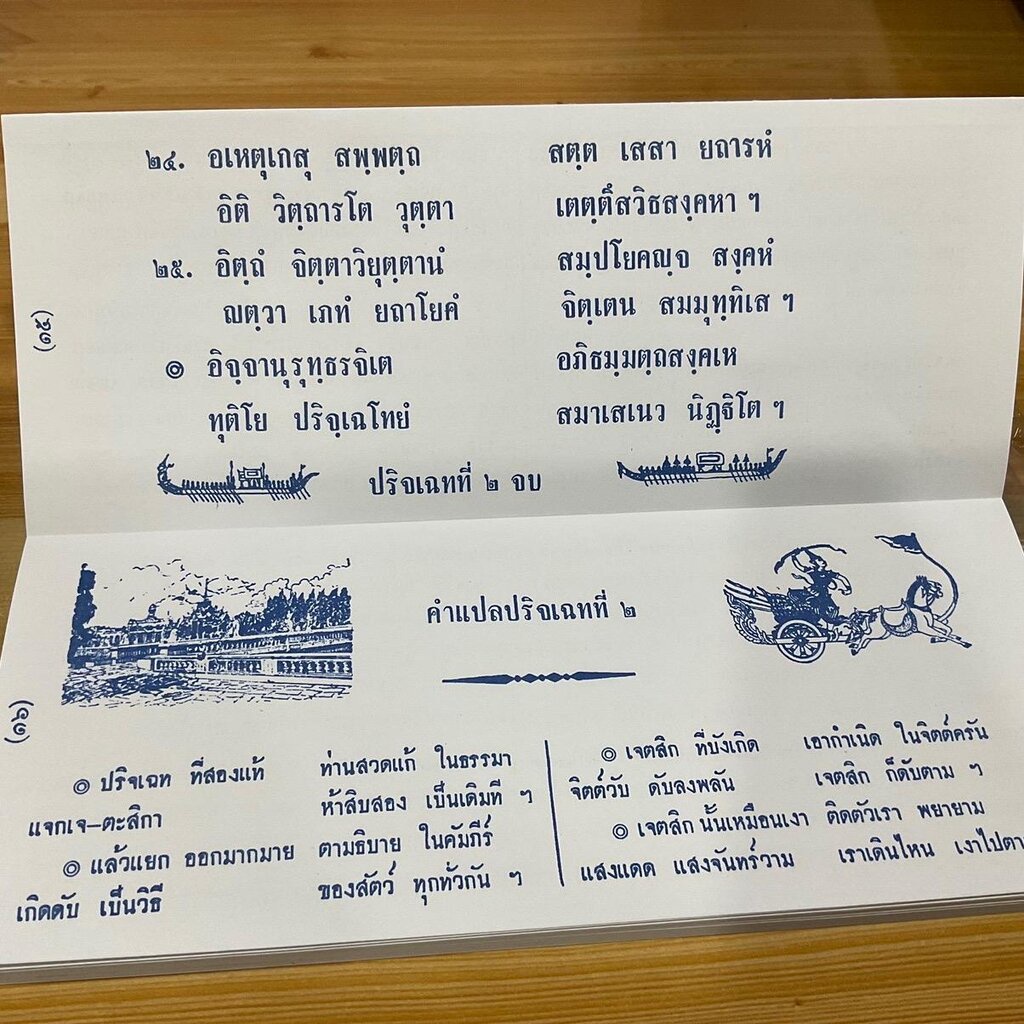 ๒๔. อเหตุเกสุ สพฺพตฺถ สตฺต เสสา ยถารหํ
อิติ วิตฺถารโต วุตฺตา เตตฺตึสวิธสงฺคหา ๆ
๒๕. อิตฺถํ จิตฺตาวิยุตฺตานํ สมฺปโยคญฺจ สงฺคหํ
ญตฺวา เภทํ ยถาโยคํ จิตฺเตน สมมุทฺทิเส ๆ
๏ อิจฺจานุรุทฺธรจิเต อภิธมฺมตฺถสงฺคเห
ทุติโย ปริจฺเฉโทยํ สมาเสเนว นิฏฺฐิโต ๆ
ปริจเฉทที่ ๒ จบ
(๑๕)
คำแปลปริจเฉทที่ ๒
(๑๖)
๏ ปริจเฉท ที่สองแท้ ท่านสวดแก้ ในธรรมา
แจกเจ–ตะสิกา ห้าสิบสอง เป็นเดิมที ๆ
๏ แล้วแยก ออกมากมาย ตามธิบาย ในคัมภีร์
เกิดดับ เป็นวิธี ของสัตว์ ทุกทั่วกัน ๆ
๏ เจตสิก ที่บังเกิด เอากำเนิด ในจิตต์ครัน
จิตต์วับ ดับลงพลัน เจตสิก ก็ดับตาม ๆ
๏ เจตสิก นั้นเหมือนเงา ติดตัวเรา พยายาม
แสงแดด แสงจันทร์วาม เราเดินไหน เงาไปตา